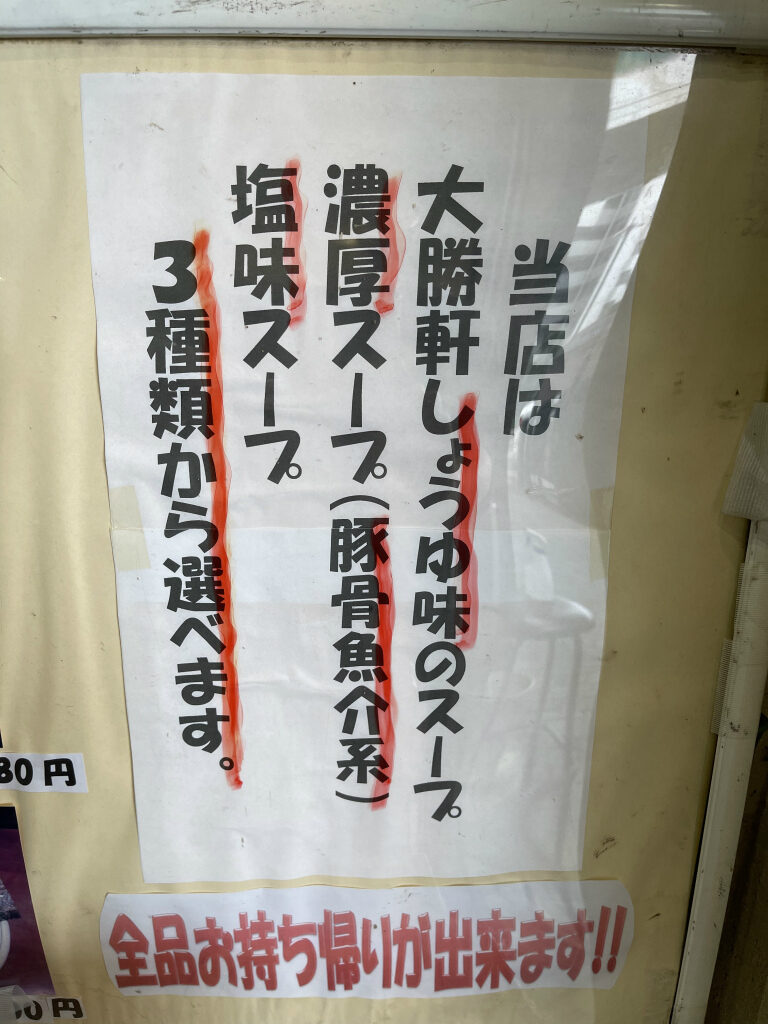 当店は
大勝軒しょうゆ味のスープ
濃厚スープ（豚骨魚介系）
塩味スープ
3種類から選べます。
全品お持ち帰りが出来ます!!
80円
00円